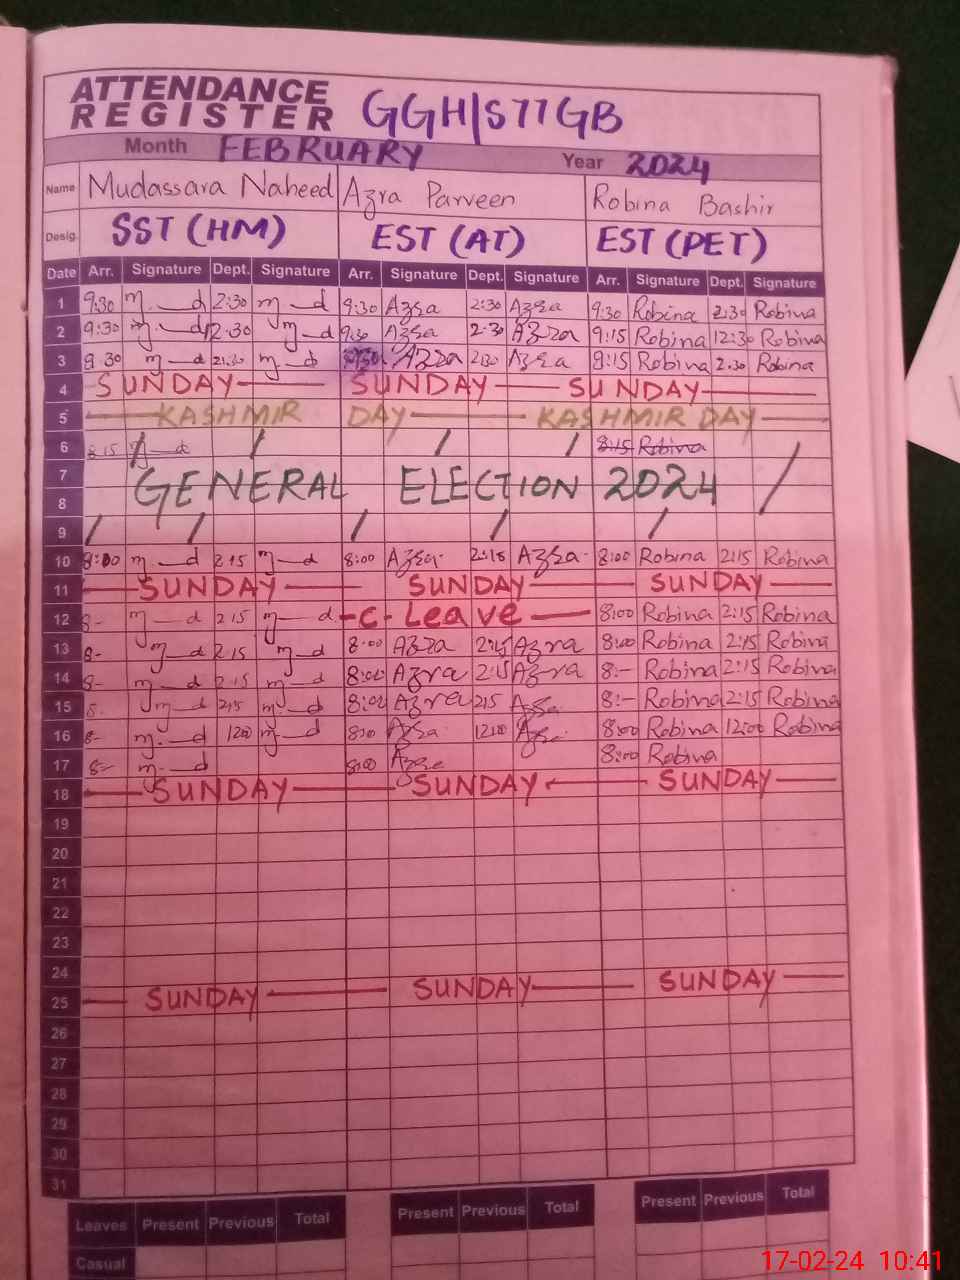 ATTENDANCE
REGISTER GGH|S77GB
Month FEBRUARY Year 2024
Name Mudassara Naheed Azra Parveen Robina Bashir
Desig. SST (HM) EST (AT) EST (PET)
Date Arr. Signature Dept. Signature Arr. Signature Dept. Signature Arr. Signature Dept. Signature
1 9:30 m—d 2:30 m—d 9:30 Azra 2:30 Azra 9:30 Robina 2:30 Robina
2 9:30 m—d 2:30 m—d 9:30 Azra 2:30 Azra 9:15 Robina 12:30 Robina
3 9:30 m—d m—d Azra 2:30 Azra 9:15 Robina 2:30 Robina
4 SUNDAY SUNDAY SUNDAY
5 KASHMIR DAY KASHMIR DAY
6 8:15 m—d 8:15 Robina
7
8 GENERAL ELECTION 2024
9
10 8:00 m—d 2:15 m—d 8:00 Azra 2:15 Azra 8:00 Robina 2:15 Robina
11 SUNDAY SUNDAY SUNDAY
12 8- m—d 2:15 m—d C-Leave 8:00 Robina 2:15 Robina
13 8- m—d 2:15 m—d 8:00 Azra 2:15 Azra 8:00 Robina 2:15 Robina
14 8- m—d 2:15 m—d 8:00 Azra 2:15 Azra 8:- Robina 2:15 Robina
15 8- m—d 2:15 m—d 8:00 Azra 2:15 Azra 8:- Robina 2:15 Robina
16 8- m—d 1200 m—d 8:00 Azra 12:00 Azra 8:00 Robina 12:00 Robina
17 8- m—d 8:00 Azra 8:00 Robina
18 SUNDAY SUNDAY SUNDAY
19
20
21
22
23
24
25 SUNDAY SUNDAY SUNDAY
26
27
28
29
30
31
Leaves Present Previous Total Present Previous Total Present Previous Total
Casual
17-02-24 10:41